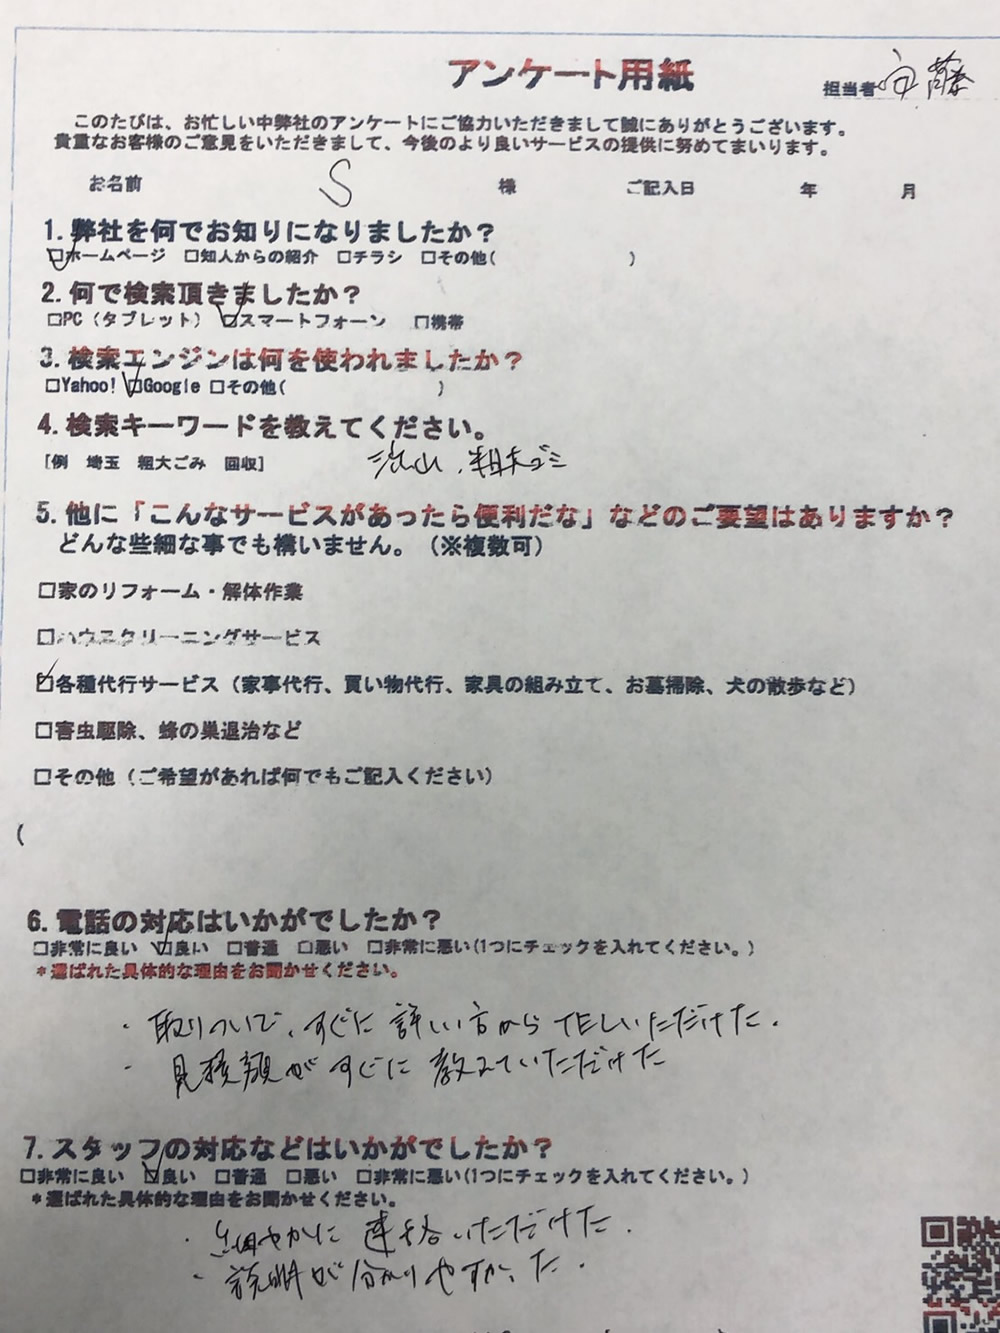 アンケート用紙
担当者 安藤
このたびは、お忙しい中弊社のアンケートにご協力いただきまして誠にありがとうございます。
貴重なお客様のご意見をいただきまして、今後のより良いサービスの提供に努めてまいります。
お名前 S 様 ご記入日 年 月
1. 弊社を何でお知りになりましたか？
☑ホームページ □知人からの紹介 □チラシ □その他( )
2. 何で検索頂きましたか？
□PC（タブレット） ☑スマートフォーン □携帯
3. 検索エンジンは何を使われましたか？
□Yahoo! ☑Google □その他( )
4. 検索キーワードを教えてください。
[例 埼玉 粗大ごみ 回収] 流山、粗大ゴミ
5. 他に「こんなサービスがあったら便利だな」などのご要望はありますか？
どんな些細な事でも構いません。（※複数可）
□家のリフォーム・解体作業
□ハウスクリーニングサービス
☑各種代行サービス（家事代行、買い物代行、家具の組み立て、お墓掃除、犬の散歩など）
□害虫駆除、蜂の巣退治など
□その他（ご希望があれば何でもご記入ください）
(
6. 電話の対応はいかがでしたか？
□非常に良い ☑良い □普通 □悪い □非常に悪い(1つにチェックを入れてください。)
*選ばれた具体的な理由をお聞かせください。
・取りついで、すぐに詳しい方から TELいただけた。
・見積額がすぐに教えていただけた
7. スタッフの対応などはいかがでしたか？
□非常に良い ☑良い □普通 □悪い □非常に悪い(1つにチェックを入れてください。)
*選ばれた具体的な理由をお聞かせください。
・細やかに連絡いただけた。
・説明が分かりやすかった。